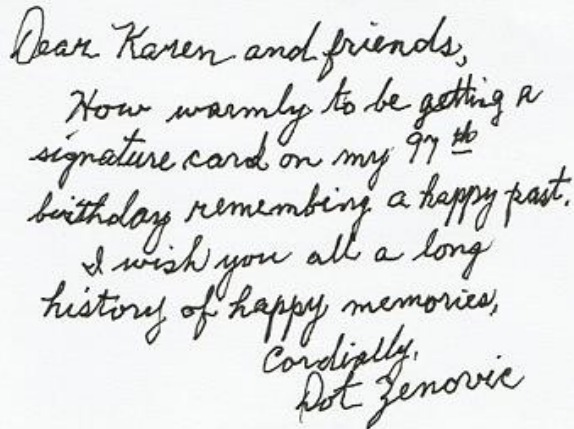 Dear Karen and friends,
How warmly to be getting a
signature card on my 97th
birthday remembing a happy past.
I wish you all a long
history of happy memories,
Cordially,
Dot Zenovic